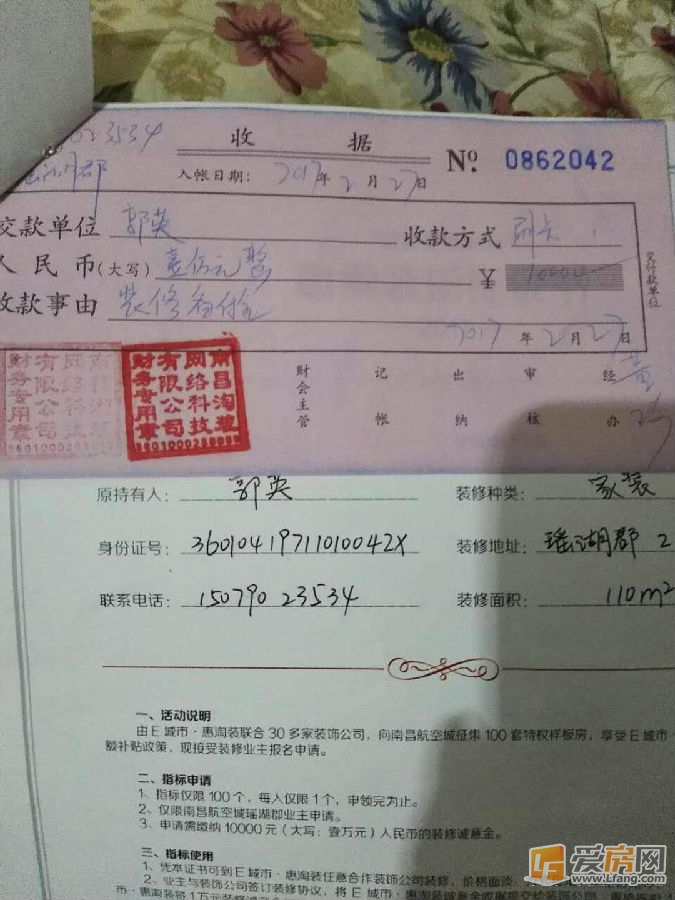 023534
收 据 No. 0862042
瑶湖郡
入帐日期: 2017年2月27日
交款单位 郭英 收款方式 刷卡
人民币(大写) 元整 ¥
收款事由 装修
2017年2月27日
交付款单位
财会主管 记帐 出纳 审核 经办
南昌淘装
网络科技
有限公司
财务专用章
南昌淘装
网络科技
有限公司
财务专用章
原持有人: 郭英 装修种类: 家装
身份证号: 36010419711010042X 装修地址: 瑶湖郡 2
联系电话: 15079023534 装修面积: 110m²
一、活动说明
由E城市·惠淘装联合30多家装饰公司,向南昌航空城征集100套特权样板房,享受E城市·
额补贴政策,现接受装修业主报名申请。
二、指标申请
1、指标仅限100个,每人仅限1个,申领完为止。
2、仅限南昌航空城瑶湖郡业主申请。
3、申请需缴纳10000签元(大写:壹万元)人民币的装修诚意金。
三、指标使用
1、凭本证书可到E城市·惠淘装任意合作装饰公司装修,价格面谈
2、业主与装饰公司签订装修协议,将E城市·惠淘装诚意金收据提交给装饰公司
市·惠淘装将1万元装修
爱房网
www.Lfang.com